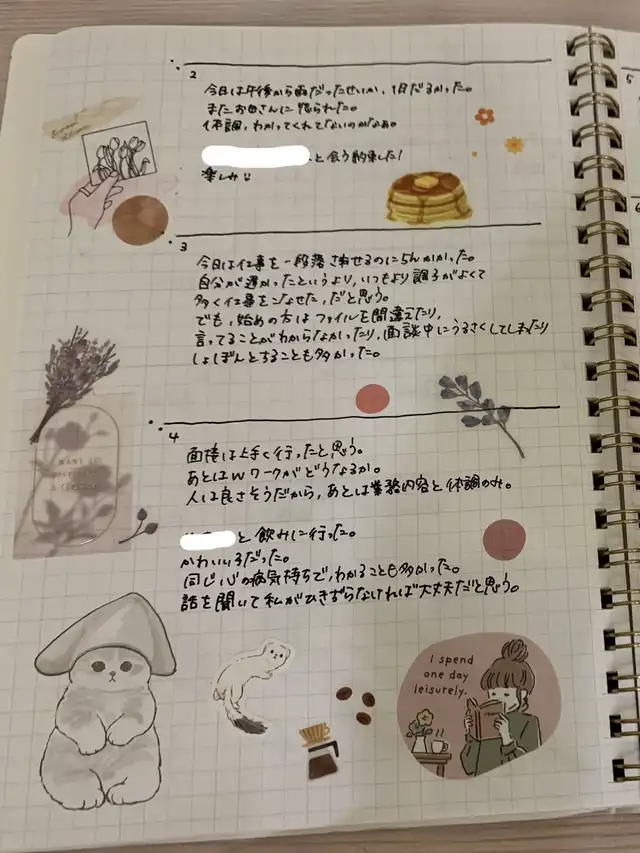 2
今日は午後から雨だったせいか、1日だるかった。
またお母さんに怒られた。
体調、わかってくれてないのかなぁ。
と会う約束した!
楽しみ
3
今日は仕事を一段落させるのに5hかかった。
自分が遅かったというより、いつもより調子がよくて
多く仕事をこなせた、だと思う。
でも、始めの方はファイルを間違えたり、
言ってることがわからなかったり、面談中にうるさくしてしまったり
しょぼんとすることも多かった。
4
面接は上手く行ったと思う。
あとはWワークがどうなるか。
人は良さそうだから、あとは業務内容と体調のみ。
と飲みに行った。
かわいい子だった。
同じ心の病気持ちで、わかることも多かった。
話を聞いて私がひきずらなければ大丈夫だと思う。
I spend
one day
leisurely.
5
6